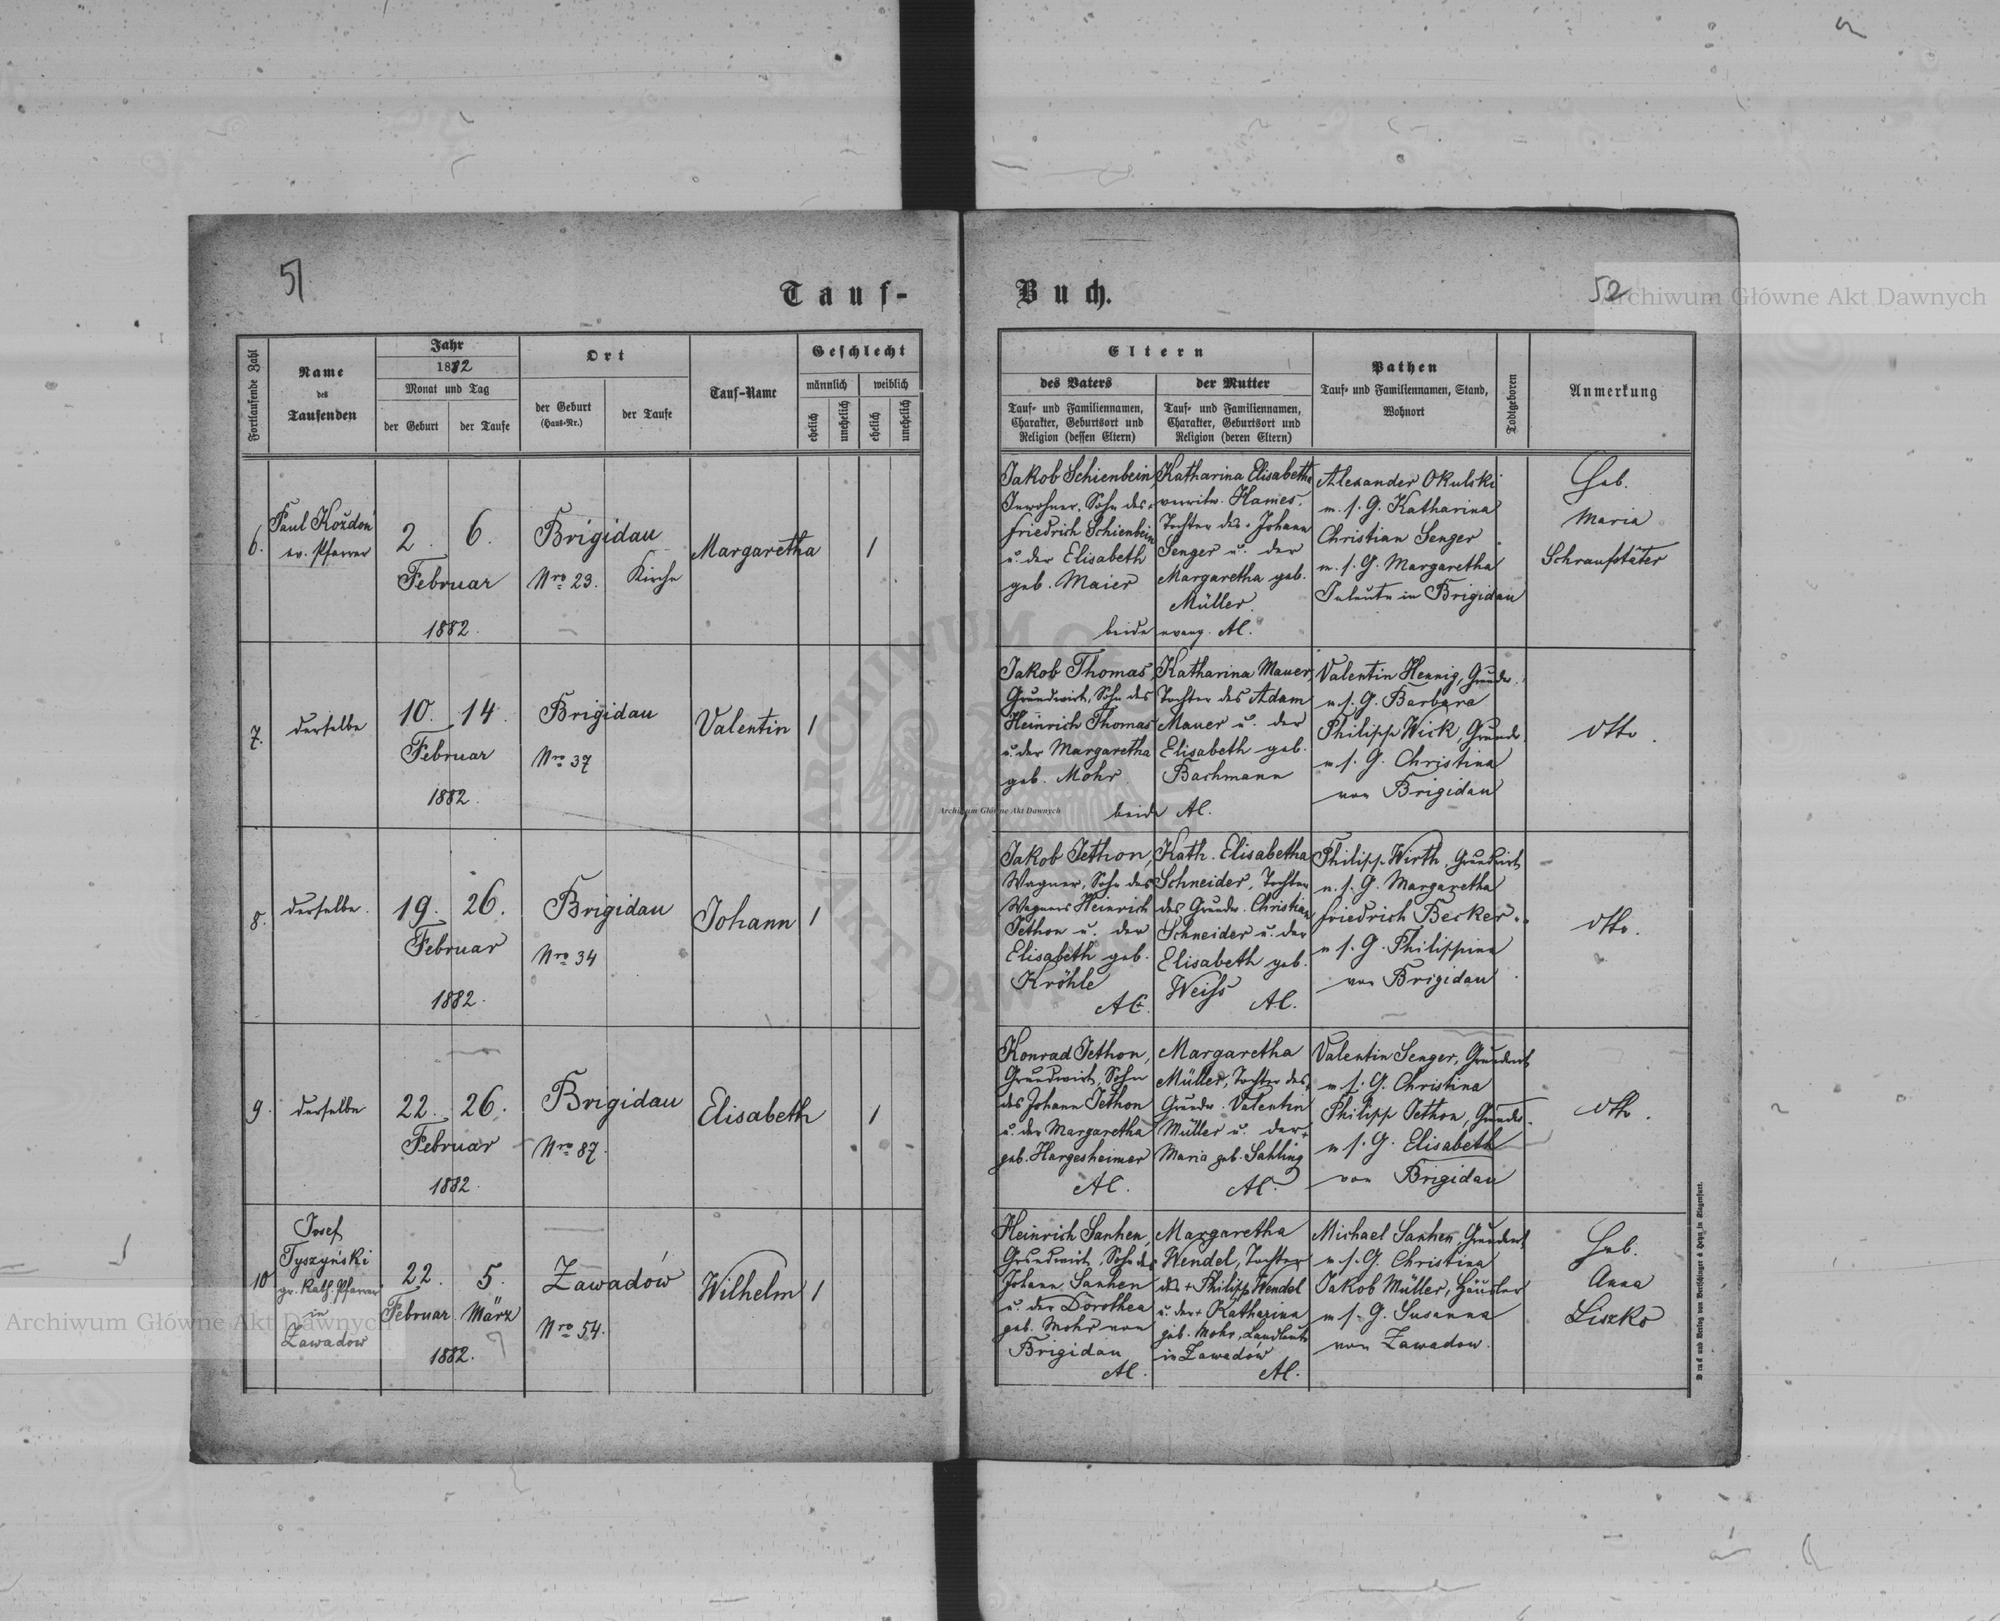 51
52
Tauf-
Buch.
Archiwum Główne Akt Dawnych
Fortlaufende Zahl
Name
des
Taufenden
Jahr
1882
Monat und Tag
der Geburt
der Taufe
Ort
der Geburt
(Haus-Nr.)
der Taufe
Tauf-Name
Geschlecht
männlich
weiblich
ehelich
unehelich
ehelich
unehelich
Eltern
des Vaters
Tauf- und Familiennamen,
Charakter, Geburtsort und
Religion (dessen Eltern)
der Mutter
Tauf- und Familiennamen,
Charakter, Geburtsort und
Religion (deren Eltern)
Pathen
Tauf- und Familiennamen, Stand,
Wohnort
Todtgeboren
Anmerkung
6.
Paul Koždoń
ev. Pfarrer
2.
6.
Februar
1882.
Brigidau
Nro 23.
Kirche
Margaretha
1
Jakob Schienbein,
Inwohner, Sohn des
Friedrich Schienbein
u. der Elisabeth
geb. Maier
Katharina Elisabetha
verwitw. Hames.
Tochter des Johann
Senger u. der
Margaretha geb.
Müller.
beide evang. AC.
Alexander Okulski
m. s. G. Katharina
Christian Senger
m. s. G. Margaretha
in Brigidau
Heb.
Maria
Schraufstäter
7.
derselbe
10.
14.
Februar
1882.
Brigidau
Nro 37
Valentin
1
Jakob Thomas,
Grundwirt, Sohn des
Heinrich Thomas
u. der Margaretha
geb. Mohr
Katharina Mauer,
Tochter des Adam
Mauer u. der
Elisabeth geb.
Bachmann
beide AC.
Valentin Hennig, Grundw.
m s. G. Barbara
Philipp Wick, Grundw.
m s. G. Christina
von Brigidau
dtto.
8.
derselbe.
19.
26.
Februar
1882.
Brigidau
Nro 34
Johann
1
Jakob Jethon,
Wagner, Sohn des
Wagners Heinrich
Jethon u. der
Elisabeth geb.
Kröhle
AC.
Kath. Elisabetha
Schneider, Tochter
des Grundw. Christian
Schneider u. der
Elisabeth geb.
Weiss
AC.
Philipp Wirth, Grundwirt
m. s. G. Margaretha
Friedrich Becker
m s. G. Philippina
von Brigidau
dtto.
9.
derselbe
22.
26.
Februar
1882.
Brigidau
Nro 87.
Elisabeth
1
Konrad Jethon,
Grundwirt, Sohn
des Johann Jethon
u. der Margaretha
geb. Hargesheimer
AC.
Margaretha
Müller, Tochter des
Grundw. Valentin
Müller u. der
Maria geb. Sahling
AC.
Valentin Senger, Grundwirt
m s. G. Christina
Philipp Jethon, Grundw.
m s. G. Elisabeth
von Brigidau
dtto.
10
Josef
Tyszyński
gr. kath. Pfarrer
in
Zawadow
22.
5.
Februar
März
1882.
Zawadów
Nro 54.
Wilhelm
1
Heinrich Sanhen,
Grundwirt, Sohn des
Johann Sanhen
u. der Dorothea
geb. Mohr von
Brigidau
AC.
Margaretha
Wendel, Tochter
des + Philipp Wendel
u. der + Katharina
geb. Mohr, Landleute
in Zawadów
AC.
Michael Sanhen, Grundwirt
m s. G. Christina
Jakob Müller, Häusler
m s. G. Susanna
von Zawadow.
Heb.
Anna
Liszko
Druck und Verlag von Bertschinger & Heyn in Klagenfurt.
Archiwum Główne Akt Dawnych
Archiwum Główne Akt Dawnych